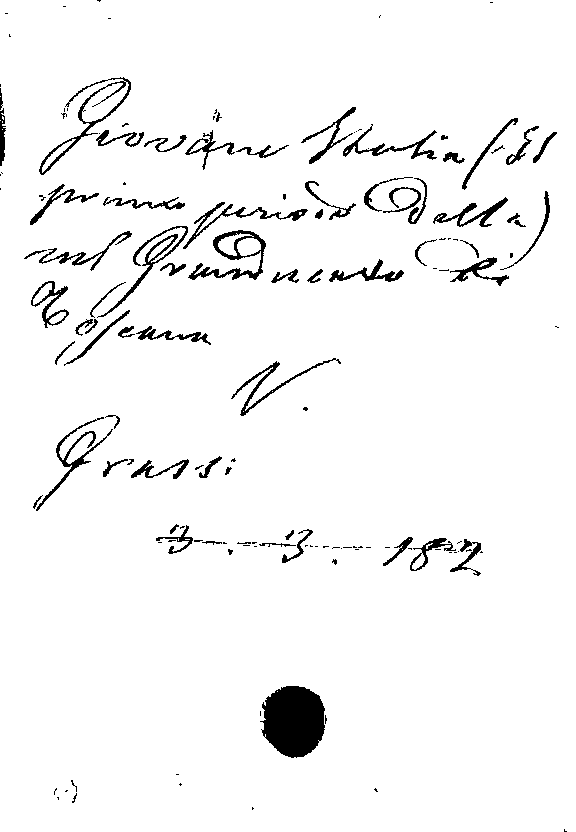 Giovane Italia (Il
primo periodo della)
nel Granducato di
Toscana
V.
Grassi
3. 3. 182